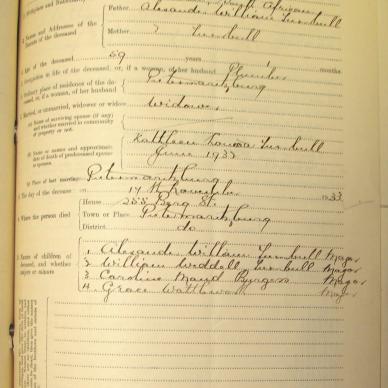 South African
Father Alexander William Turnbull
2. Names and Addresses of the
Parents of the deceased
Mother ? Turnbull
Age of the deceased 59 years months
Occupation in life of the deceased, or, if a woman, of her husband Plumber
Ordinary place of residence of the deceased, or, if a woman, of her husband Pietermaritzburg
Married, or unmarried, widower or widow Widower
(a) Name of surviving spouse (if any)
and whether married in community
of property or not.
(b) Name or names and approximate
date of death of predeceased spouse
or spouses
Kathleen Louisa Turnbull
June 1933
(c) Place of last marriage Pietermaritzburg
The day of the decease on 17th November 1933
Where the person died
House 255 Burg St.
Town or Place Pietermaritzburg
District do
Names of children of
deceased, and whether
majors or minors
1. Alexander William Turnbull Major
2 William Weddell Turnbull Major
3 Caroline Maud Burgess Major
4. Grace Major